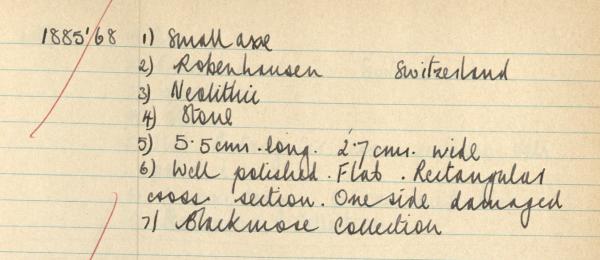 1885'68 1) Small axe
2) Robenhausen Switzerland
3) Neolithic
4) Stone
5) 5.5 cms. long. 2.7 cms. wide
6) Well polished. Flat. Rectangular
cross section. One side damaged
7) Blackmore Collection